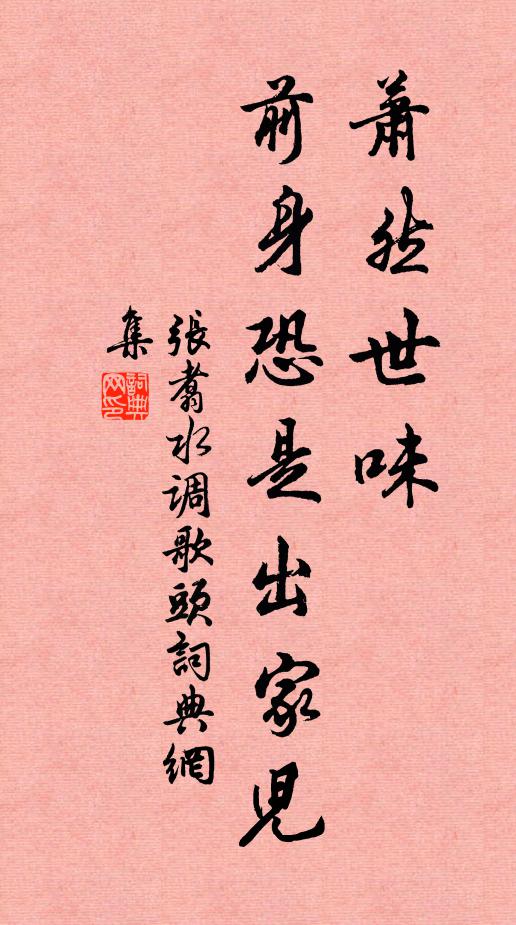 蕭然世味
前身恐是出家児
張翥水调歌頭詞典網
集
詞典
网印